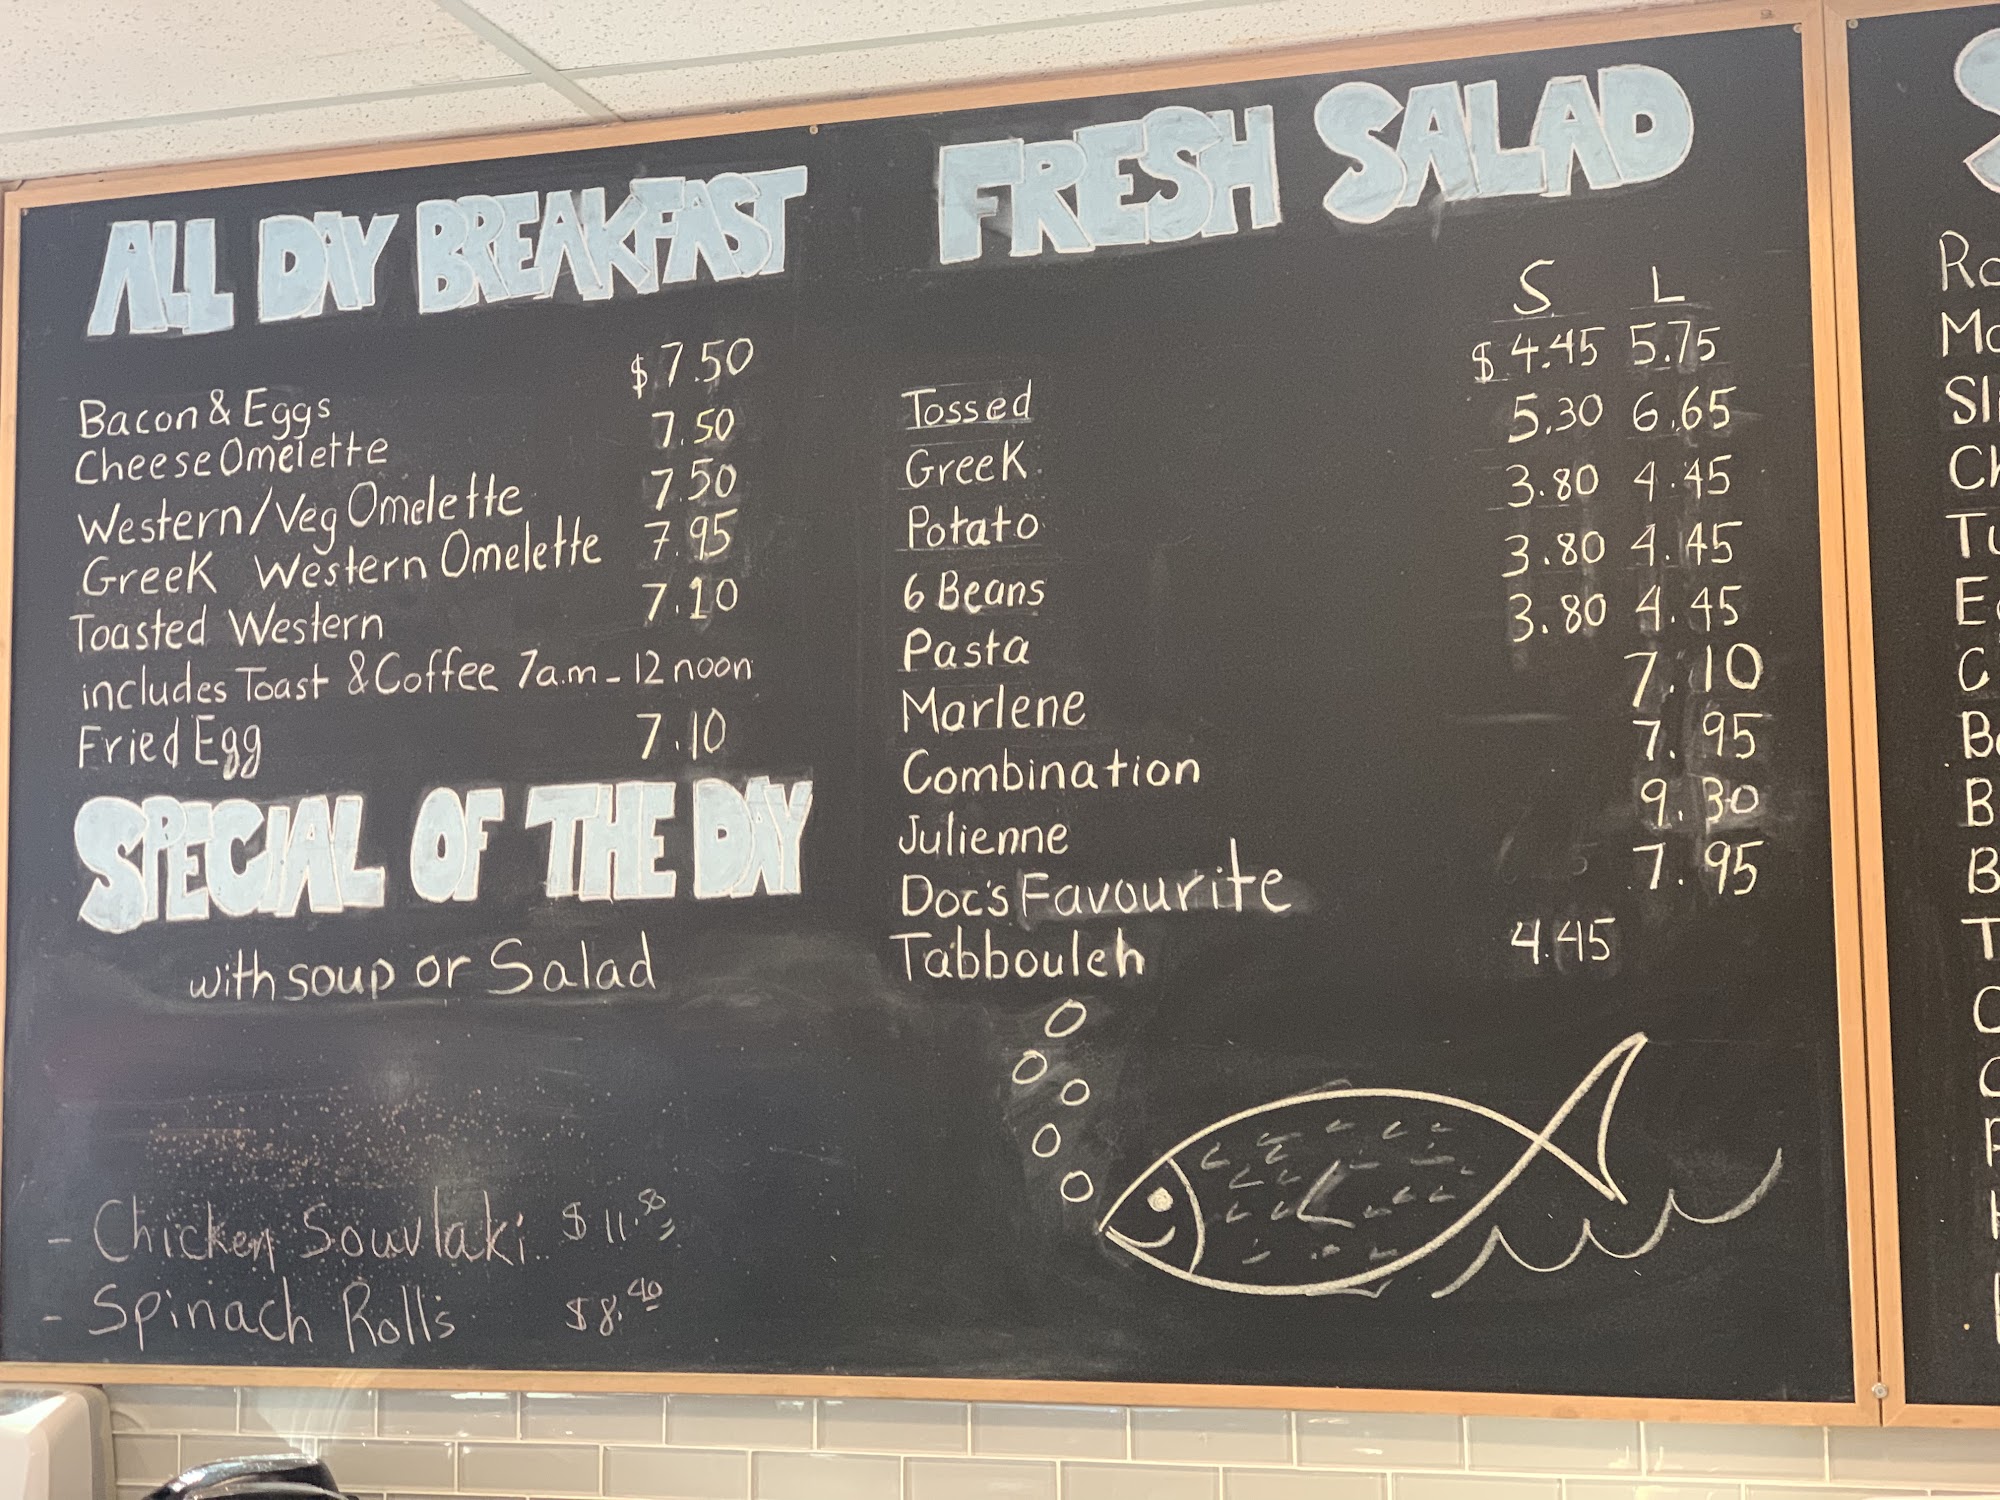 ALL DAY BREAKFAST
Bacon & Eggs $7.50
Cheese Omelette 7.50
Western/Veg Omelette 7.50
Greek Western Omelette 7.95
Toasted Western 7.10
includes Toast & Coffee 7a.m - 12 noon
Fried Egg 7.10
SPECIAL OF THE DAY
with soup or Salad
- Chicken Souvlaki $11.80
- Spinach Rolls $8.40
FRESH SALAD
S L
Tossed $4.45 5.75
Greek 5.30 6.65
Potato 3.80 4.45
6 Beans 3.80 4.45
Pasta 3.80 4.45
Marlene 7.10
Combination 7.95
Julienne 9.30
Doc's Favourite 7.95
Tabbouleh 4.45